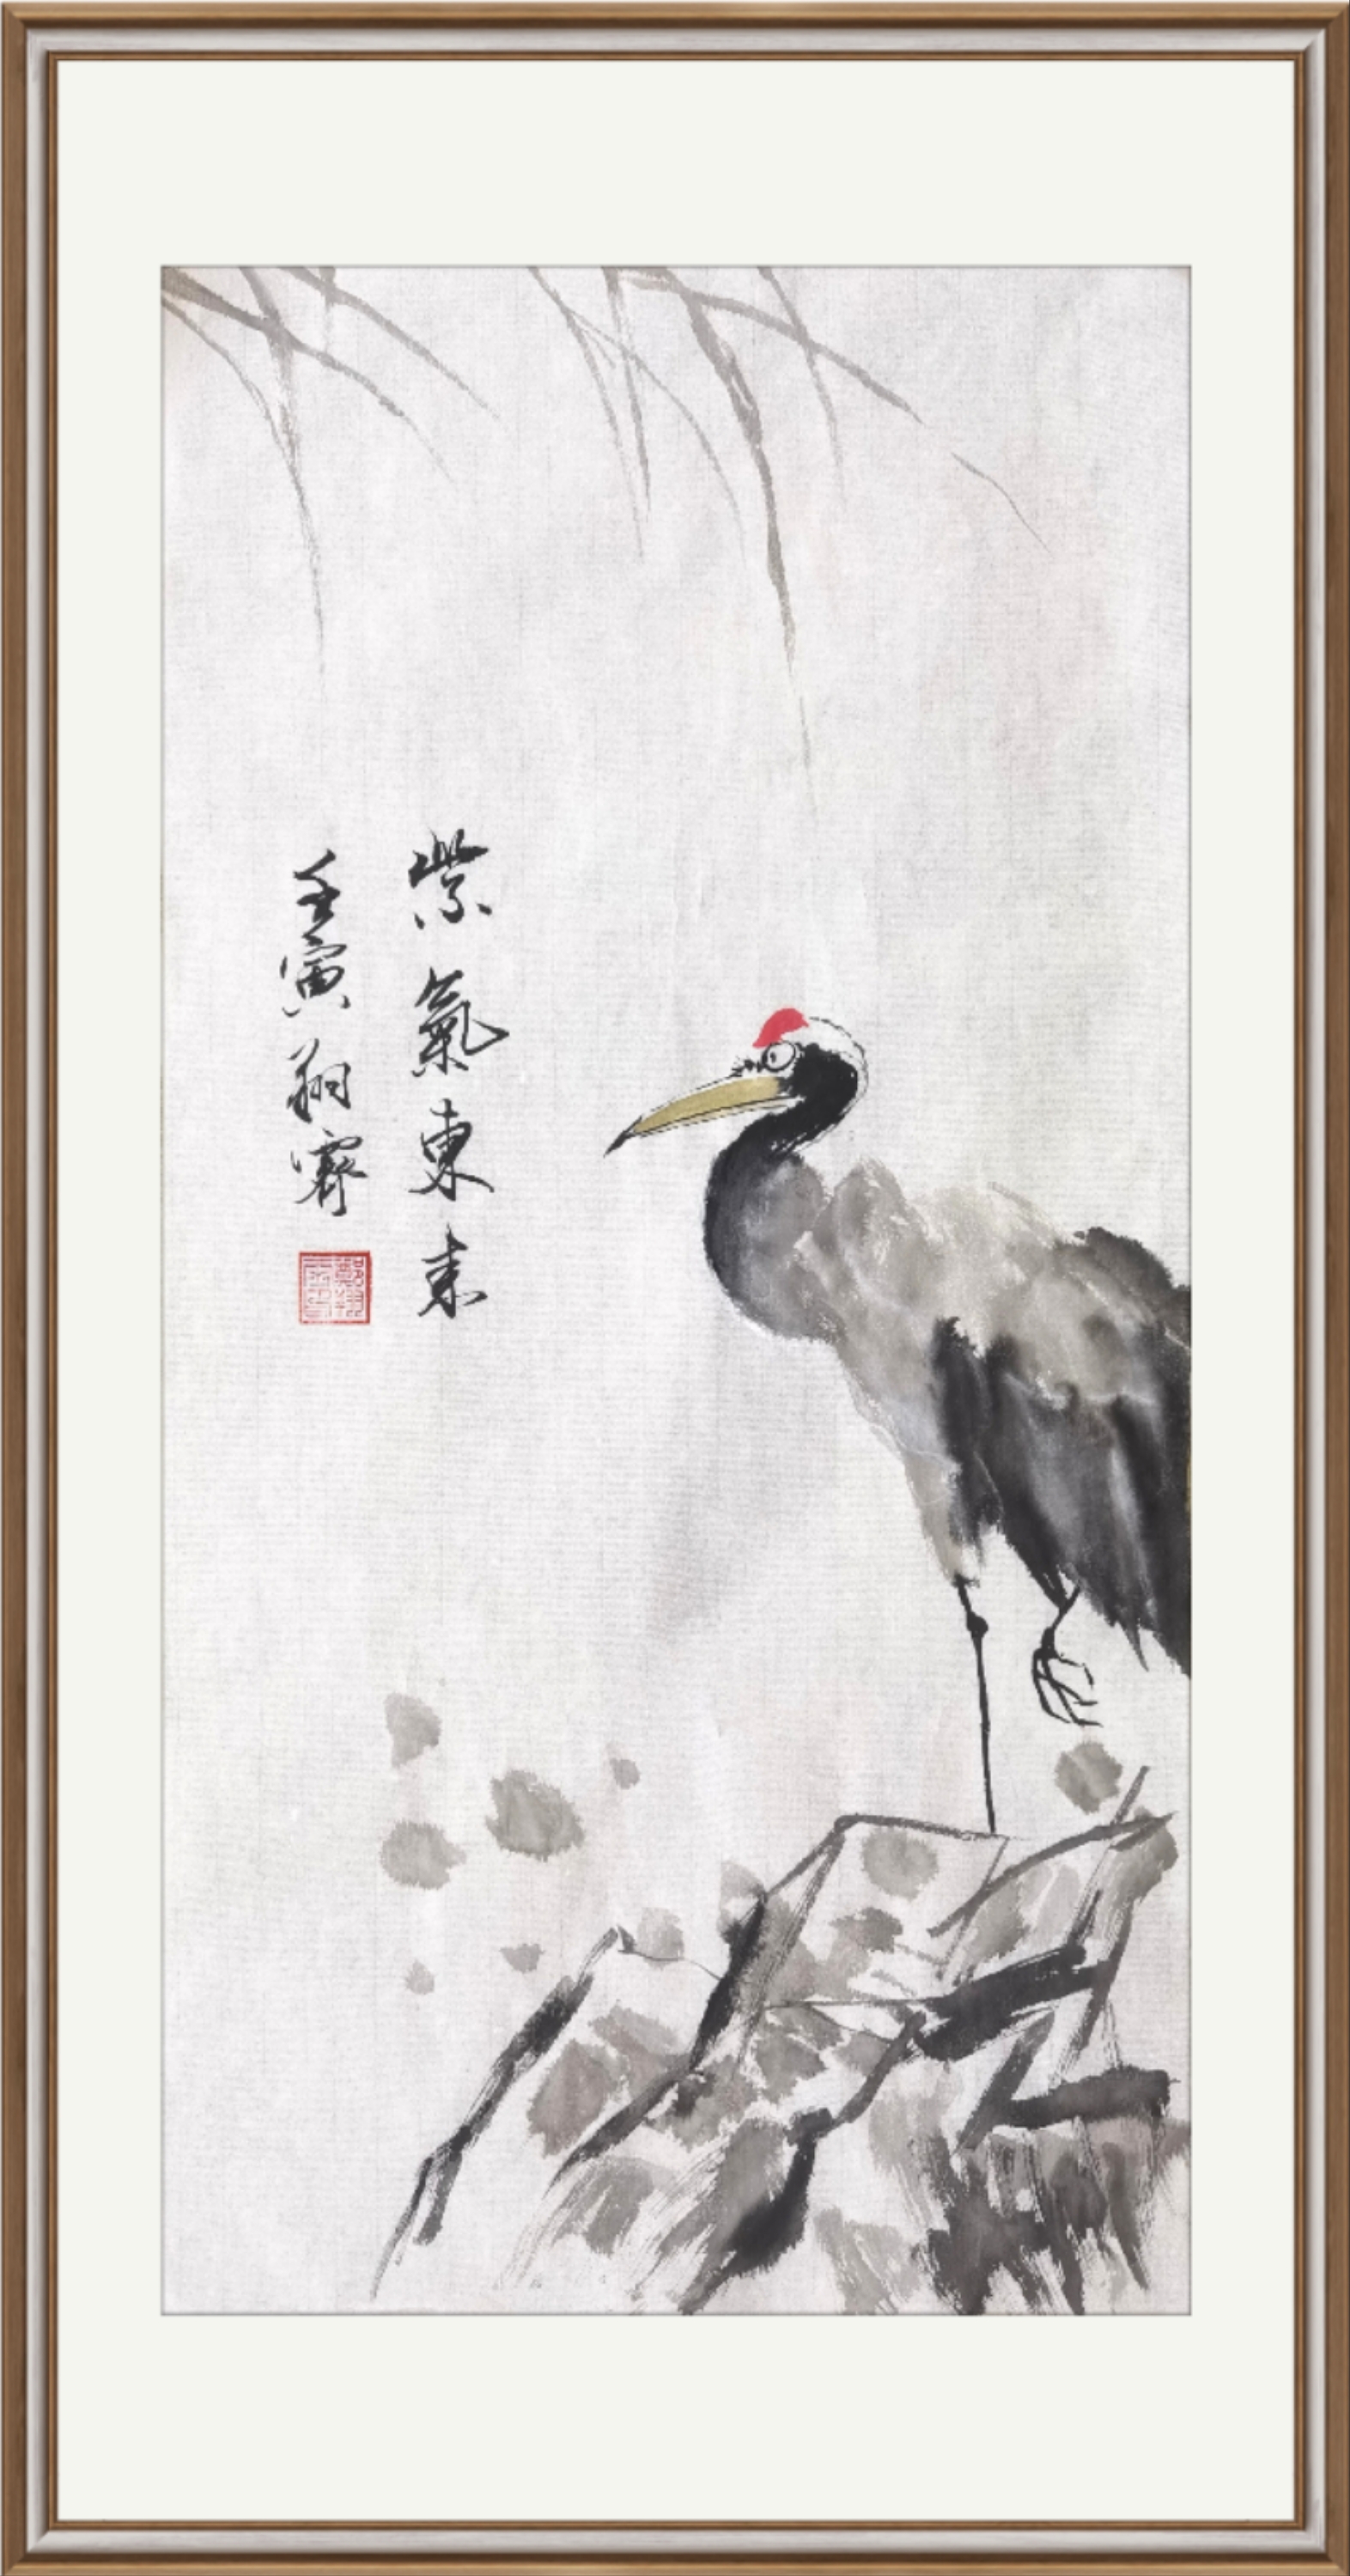 紫氣東來
壬寅翔霽